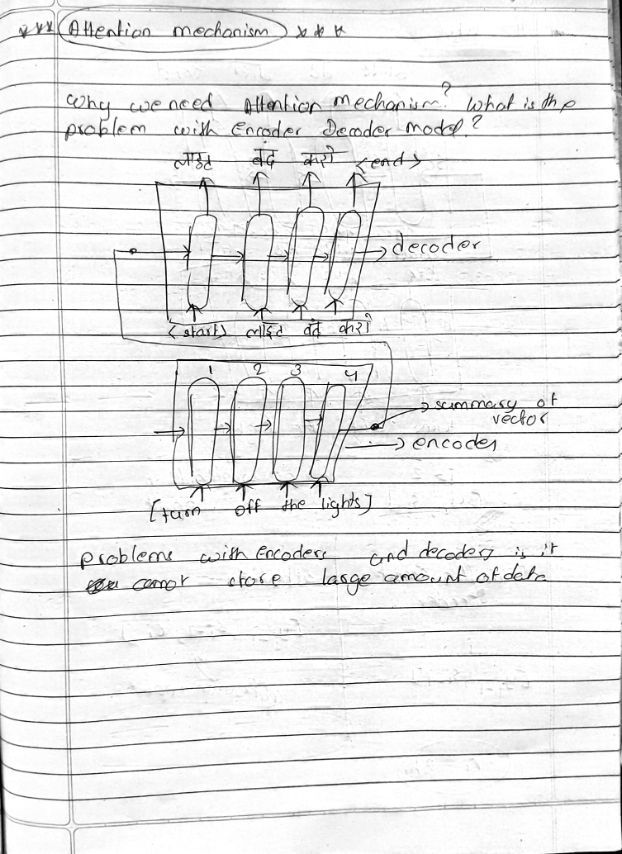 *** Attention mechanism ***
Why we need Attention mechanism? What is the
problem with Encoder Decoder model?
लाइट बंद करो <end>
decoder
<start> लाइट बंद करो
1 2 3 4
summary of
vector
encoder
[turn off the lights]
problems with Encoders and decoders is it
cannot store large amount of data